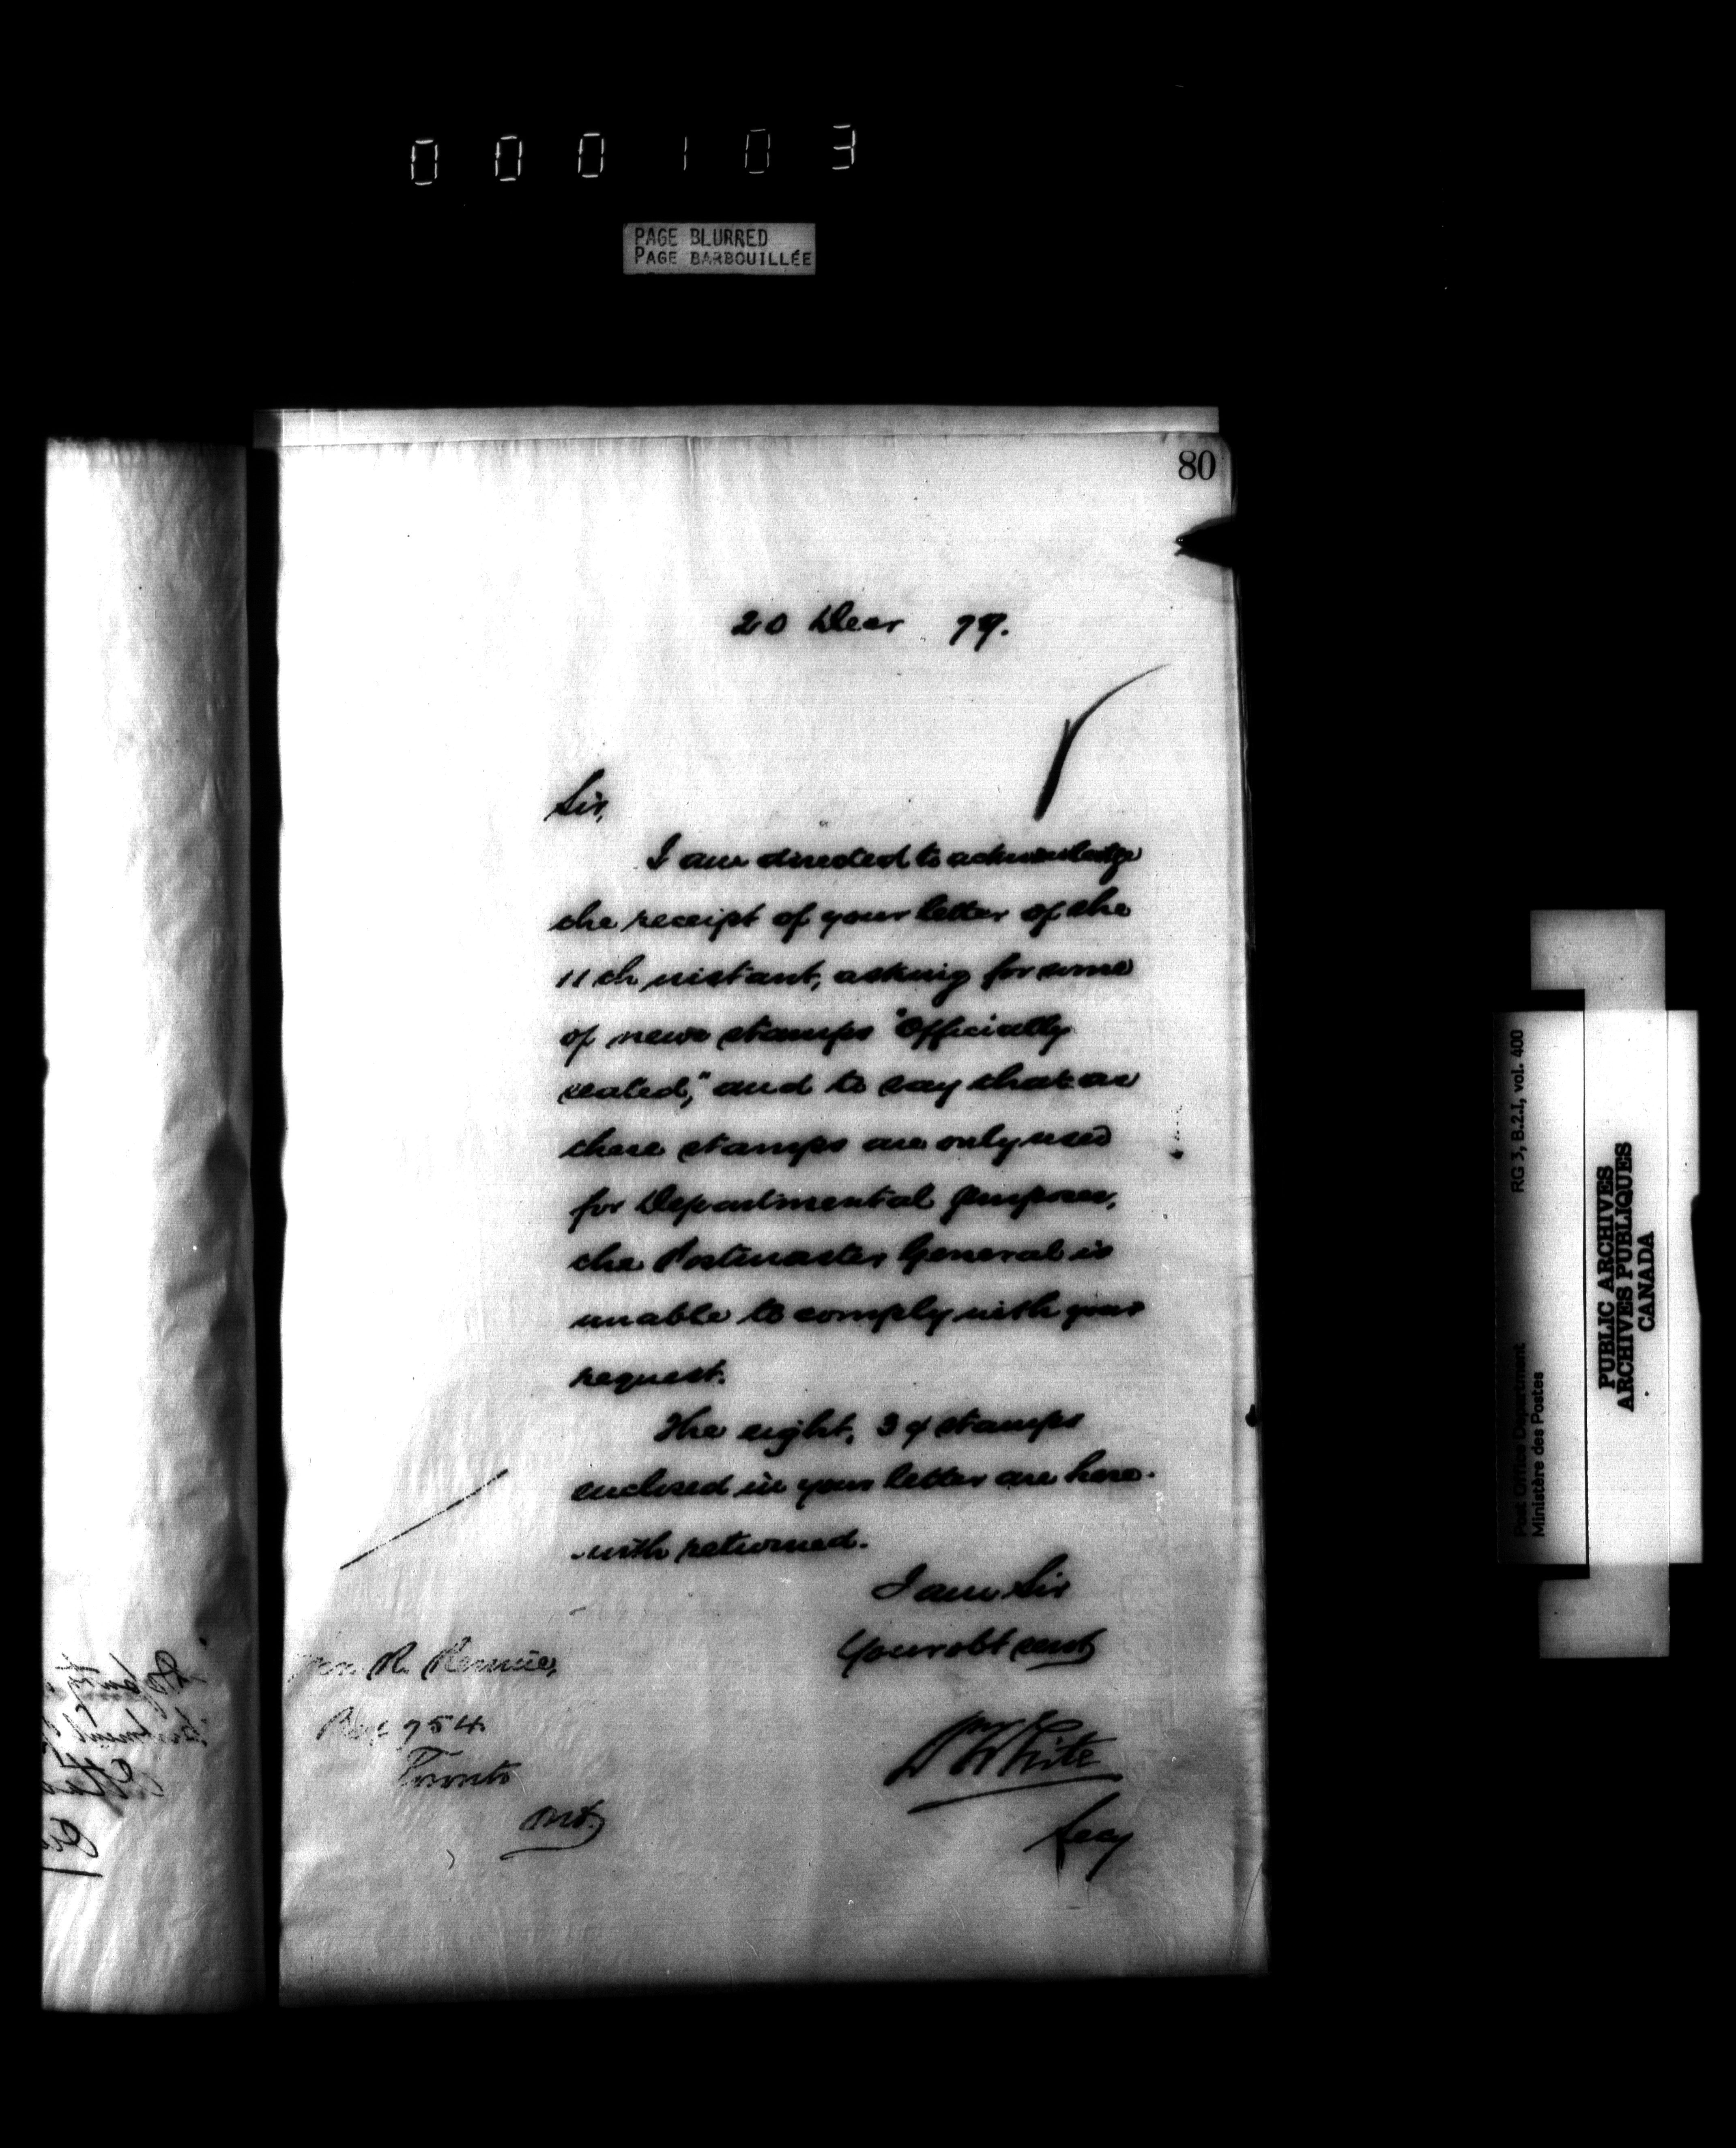 000103
PAGE BLURRED
PAGE BARBOUILLÉE
80
20 Decr 79.
Sir,
I am directed to acknowledge
the receipt of your letter of the
11th instant, asking for some
of new stamps "Officially
sealed," and to say that as
these stamps are only used
for Departmental purposes,
the Postmaster General is
unable to comply with your
request.
The eight, 3¢ stamps
enclosed in your letter are here-
-with returned.
I am Sir
Your obt servt
Wm White
Secy
R. Rennie,
Box 954
Toronto
Ont.
RG 3, B.2.I, vol. 400
Post Office Department
Ministère des Postes
PUBLIC ARCHIVES
ARCHIVES PUBLIQUES
CANADA